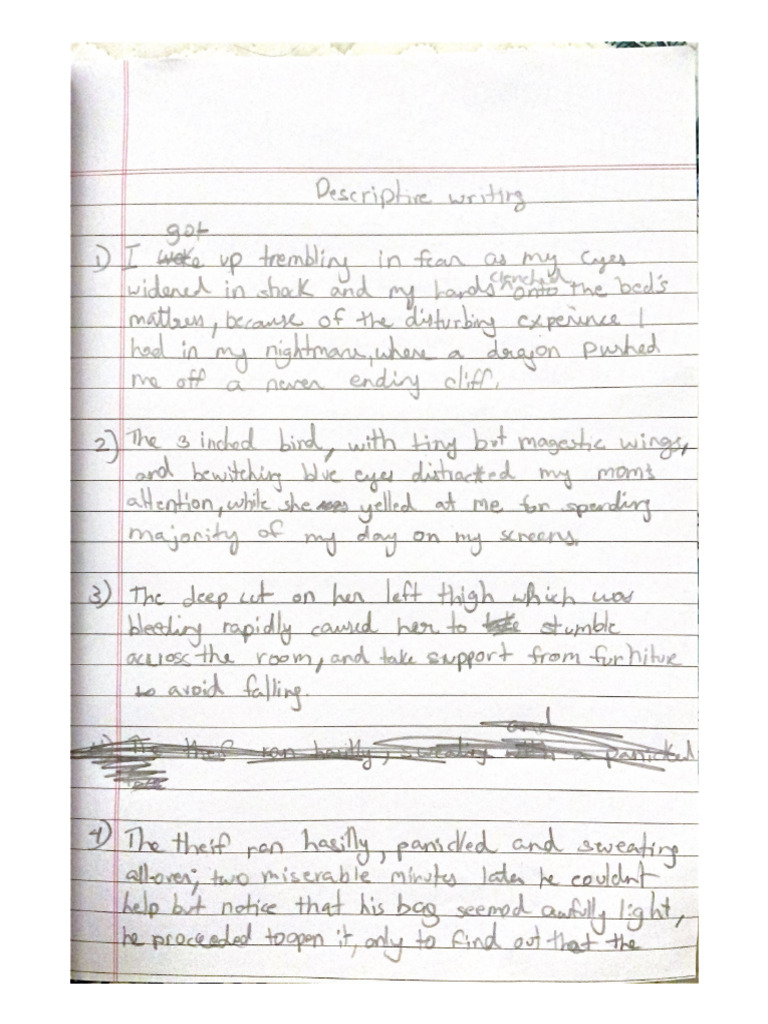 Descriptive writing
got
1) I woke up trembling in fear as my eyes
widened in shock and my hands clenched onto the bed's
mattress, because of the disturbing experience I
had in my nightmare, where a dragon pushed
me off a never ending cliff.
2) The 3 inched bird, with tiny but magestic wings,
and bewitching blue eyes distracted my mom's
attention, while she was yelled at me for spending
majority of my day on my screens.
3) The deep cut on her left thigh which was
bleeding rapidly caused her to take stumble
across the room, and take support from furniture
to avoid falling.
and
4) The theif ran hastily, sweating with a panicked
4) The theif ran hasilly, panicked and sweating
allover; two miserable minutes later he couldn't
help but notice that his bag seemed awfully light,
he proceeded to open it, only to find out that the